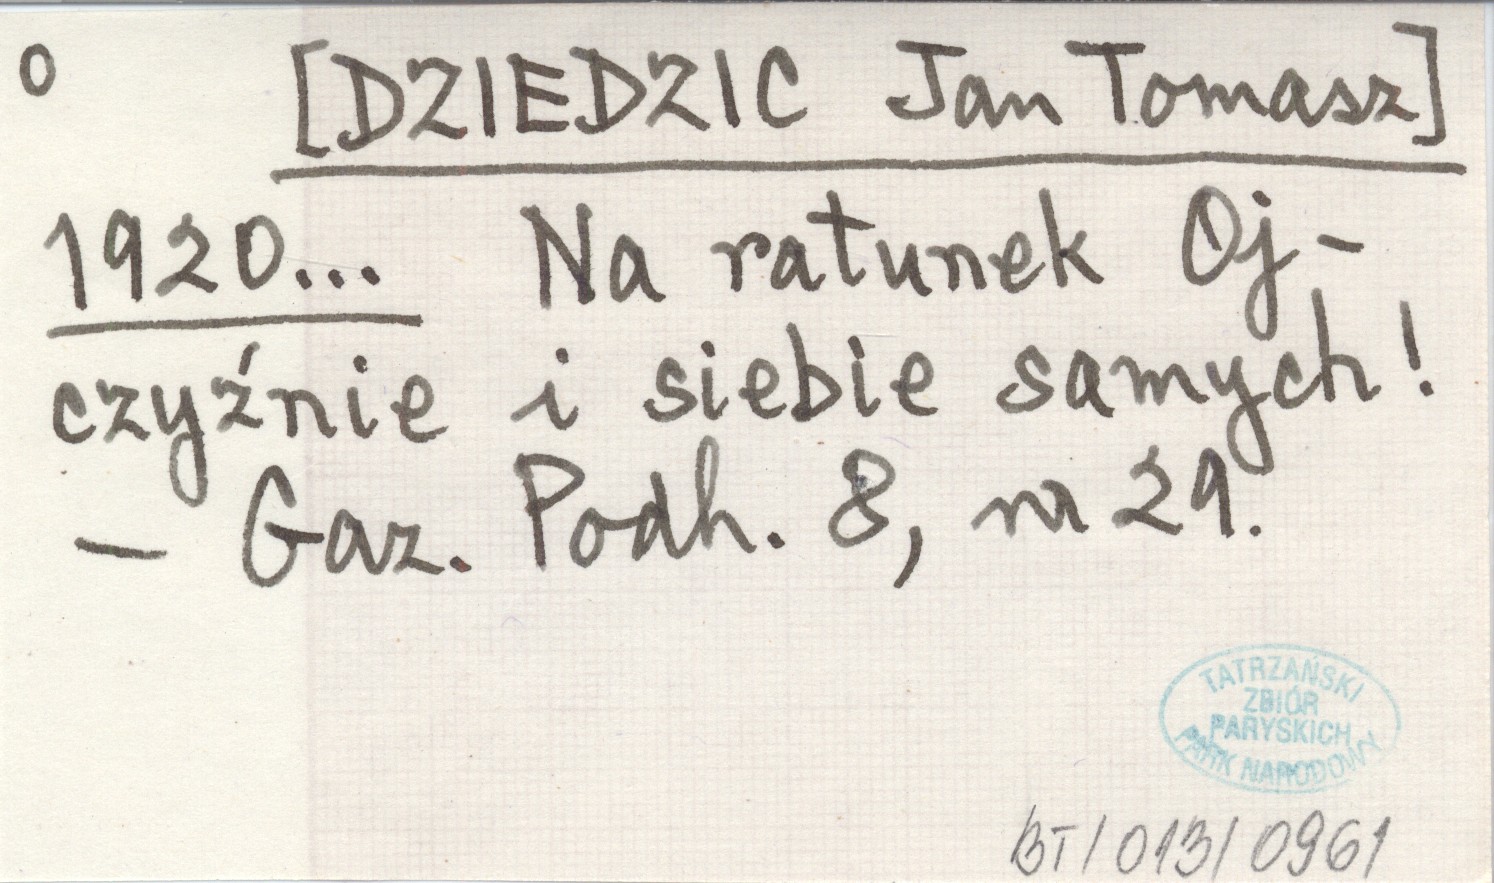 o [DZIEDZIC Jan Tomasz]
1920... Na ratunek Oj-
czyźnie i siebie samych!
— Gaz. Podh. 8, nr 29.
TATRZAŃSKI
ZBIÓR
PARYSKICH
PARK NARODOWY
BT/013/0961